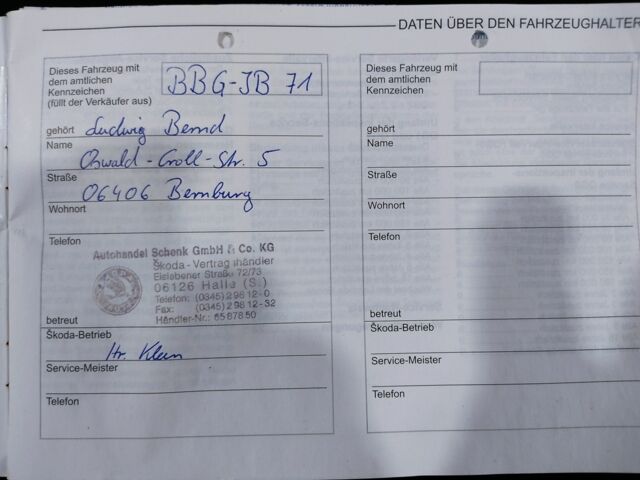 DATEN ÜBER DEN FAHRZEUGHALTER
Dieses Fahrzeug mit
dem amtlichen
Kennzeichen
(füllt der Verkäufer aus)
BBG-JB 71
gehört Ludwig Bernd
Name
Oswald-Croll-Str. 5
Straße
06406 Bernburg
Wohnort
Telefon
Autohandel Schenk GmbH & Co. KG
Škoda-Vertragshändler
Eislebener Straße 72/73
06126 Halle (S.)
Telefon: (0345) 2 98 12-0
Fax: (0345) 2 98 12-32
Händler-Nr.: 65 878 50
betreut
Škoda-Betrieb
Hr. Klein
Service-Meister
Telefon
Dieses Fahrzeug mit
dem amtlichen
Kennzeichen
gehört
Name
Straße
Wohnort
Telefon
betreut
Škoda-Betrieb
Service-Meister
Telefon